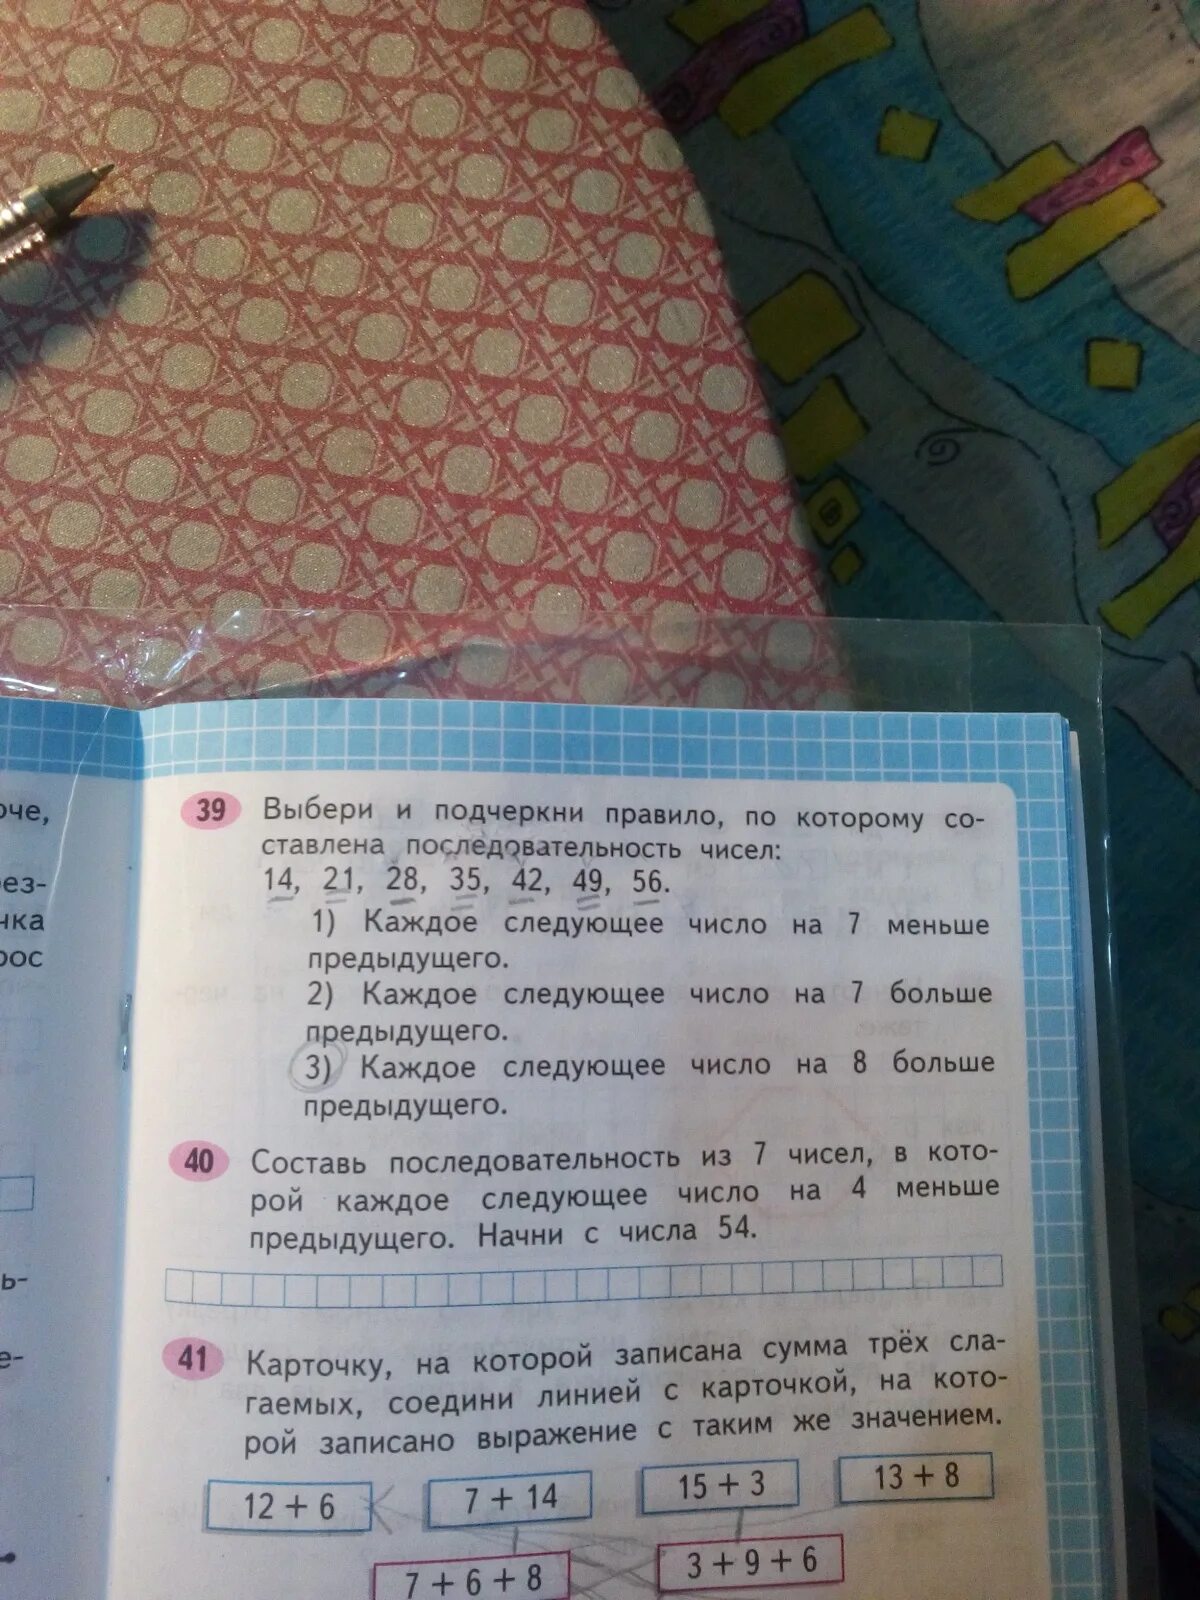 оче,
рез-
чка
рос
ь-
е-
39 Выбери и подчеркни правило, по которому со-
ставлена последовательность чисел:
14, 21, 28, 35, 42, 49, 56.
1) Каждое следующее число на 7 меньше
предыдущего.
2) Каждое следующее число на 7 больше
предыдущего.
3) Каждое следующее число на 8 больше
предыдущего.
40 Составь последовательность из 7 чисел, в кото-
рой каждое следующее число на 4 меньше
предыдущего. Начни с числа 54.
41 Карточку, на которой записана сумма трёх сла-
гаемых, соедини линией с карточкой, на кото-
рой записано выражение с таким же значением.
12 + 6 7 + 14 15 + 3 13 + 8
7 + 6 + 8 3 + 9 + 6